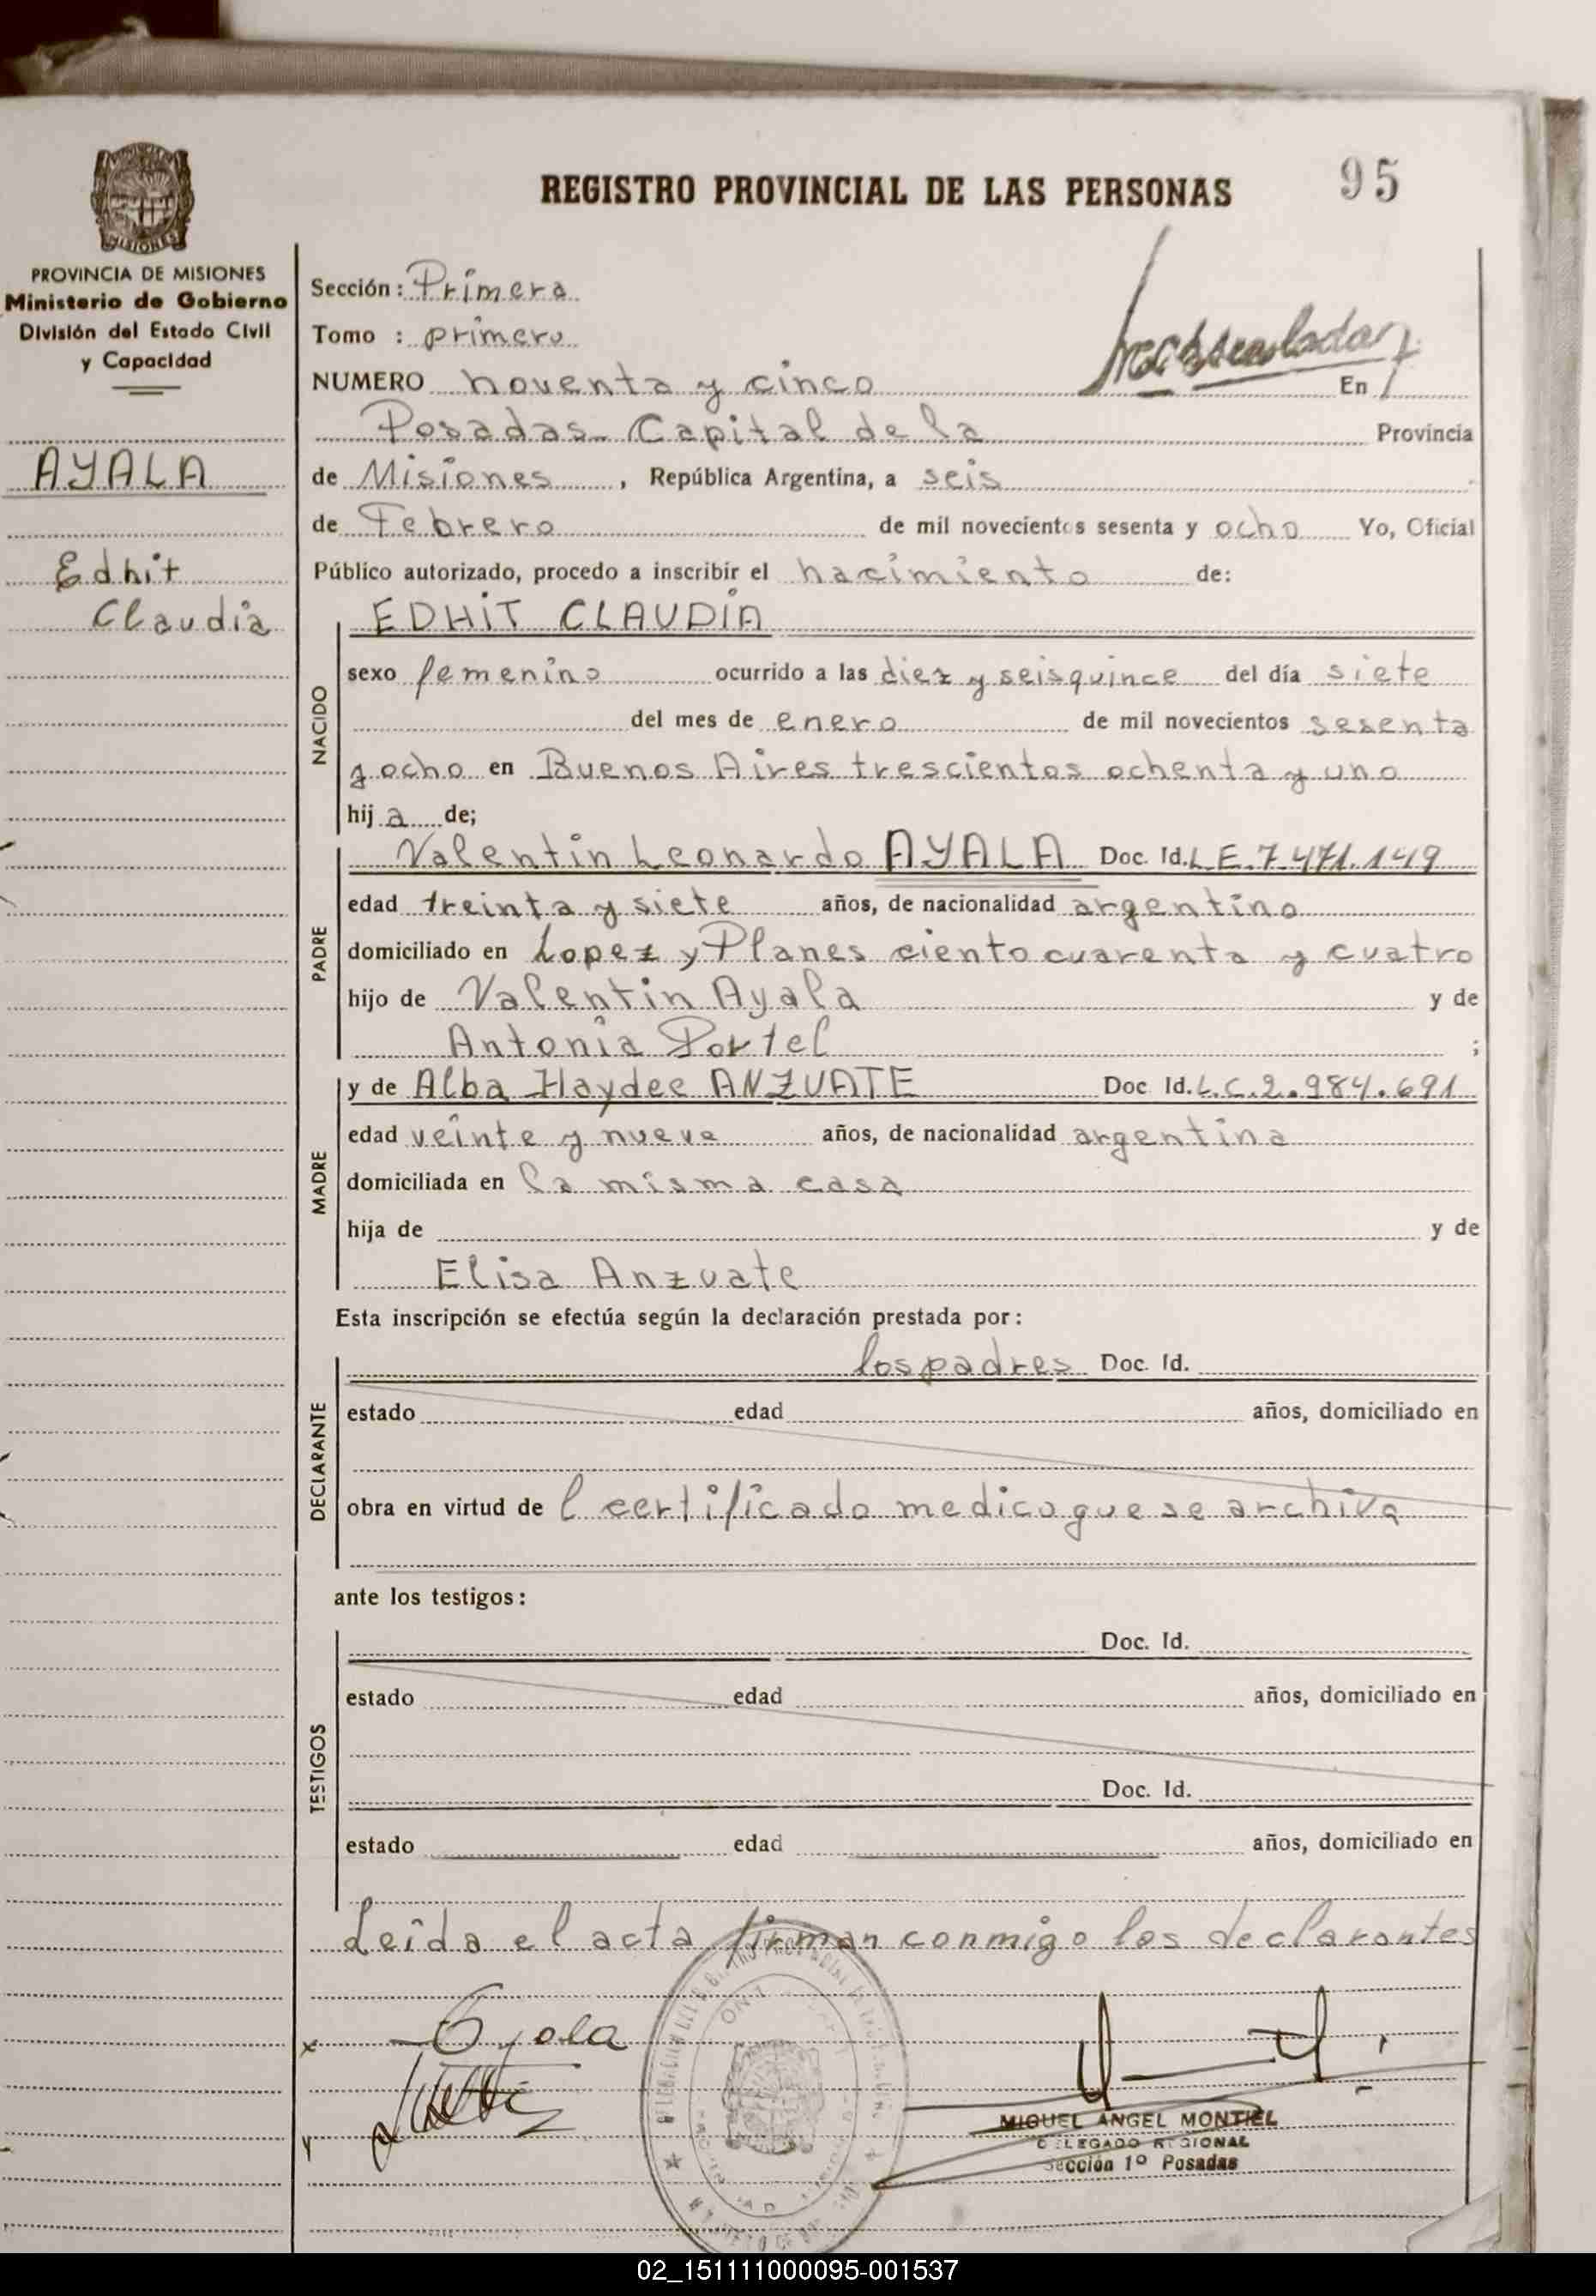 REGISTRO PROVINCIAL DE LAS PERSONAS
95
PROVINCIA DE MISIONES
Ministerio de Gobierno
División del Estado Civil
y Capacidad
AYALA
Edhit
Claudia
Sección: Primera
Tomo : primero
NUMERO noventa y cinco En
Posadas Capital de la Provincia
de Misiones, República Argentina, a seis
de Febrero de mil novecientos sesenta y ocho Yo, Oficial
Público autorizado, procedo a inscribir el nacimiento de:
NACIDO
EDHIT CLAUDIA
sexo femenino ocurrido a las diez y seis quince del día siete
del mes de enero de mil novecientos sesenta
y ocho en Buenos Aires trescientos ochenta y uno
hija de;
PADRE
Valentin Leonardo AYALA Doc. Id. L.E. 7.471.149
edad treinta y siete años, de nacionalidad argentino
domiciliado en Lopez y Planes ciento cuarenta y cuatro
hijo de Valentin Ayala y de
Antonia Portel ;
MADRE
y de Alba Haydee ANZUATE Doc. Id. L.C. 2.984.691
edad veinte y nueve años, de nacionalidad argentina
domiciliada en la misma casa
hija de y de
Elisa Anzuate
Esta inscripción se efectúa según la declaración prestada por:
DECLARANTE
los padres Doc. Id.
estado edad años, domiciliado en
obra en virtud del certificado medico que se archiva
ante los testigos:
TESTIGOS
Doc. Id.
estado edad años, domiciliado en
Doc. Id.
estado edad años, domiciliado en
Leida el acta firman conmigo los declarantes
MIGUEL ANGEL MONTIEL
DELEGADO REGIONAL
Sección 1º Posadas
02_151111000095-001537